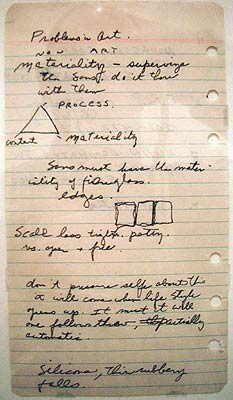 Problems in Art.
NON ART
materiality – supervize
the Sans, do it thru
with them
PROCESS.
content
materiality
Sans must have the mater-
iality of fiberglass.
edges.
Scale less tight. pattog.
vs. open + free.
don't pressure self about this
it will come when life style
opens up. It must it will
one follows the partially
automatic.
Silicone, thin rubbery
falls.